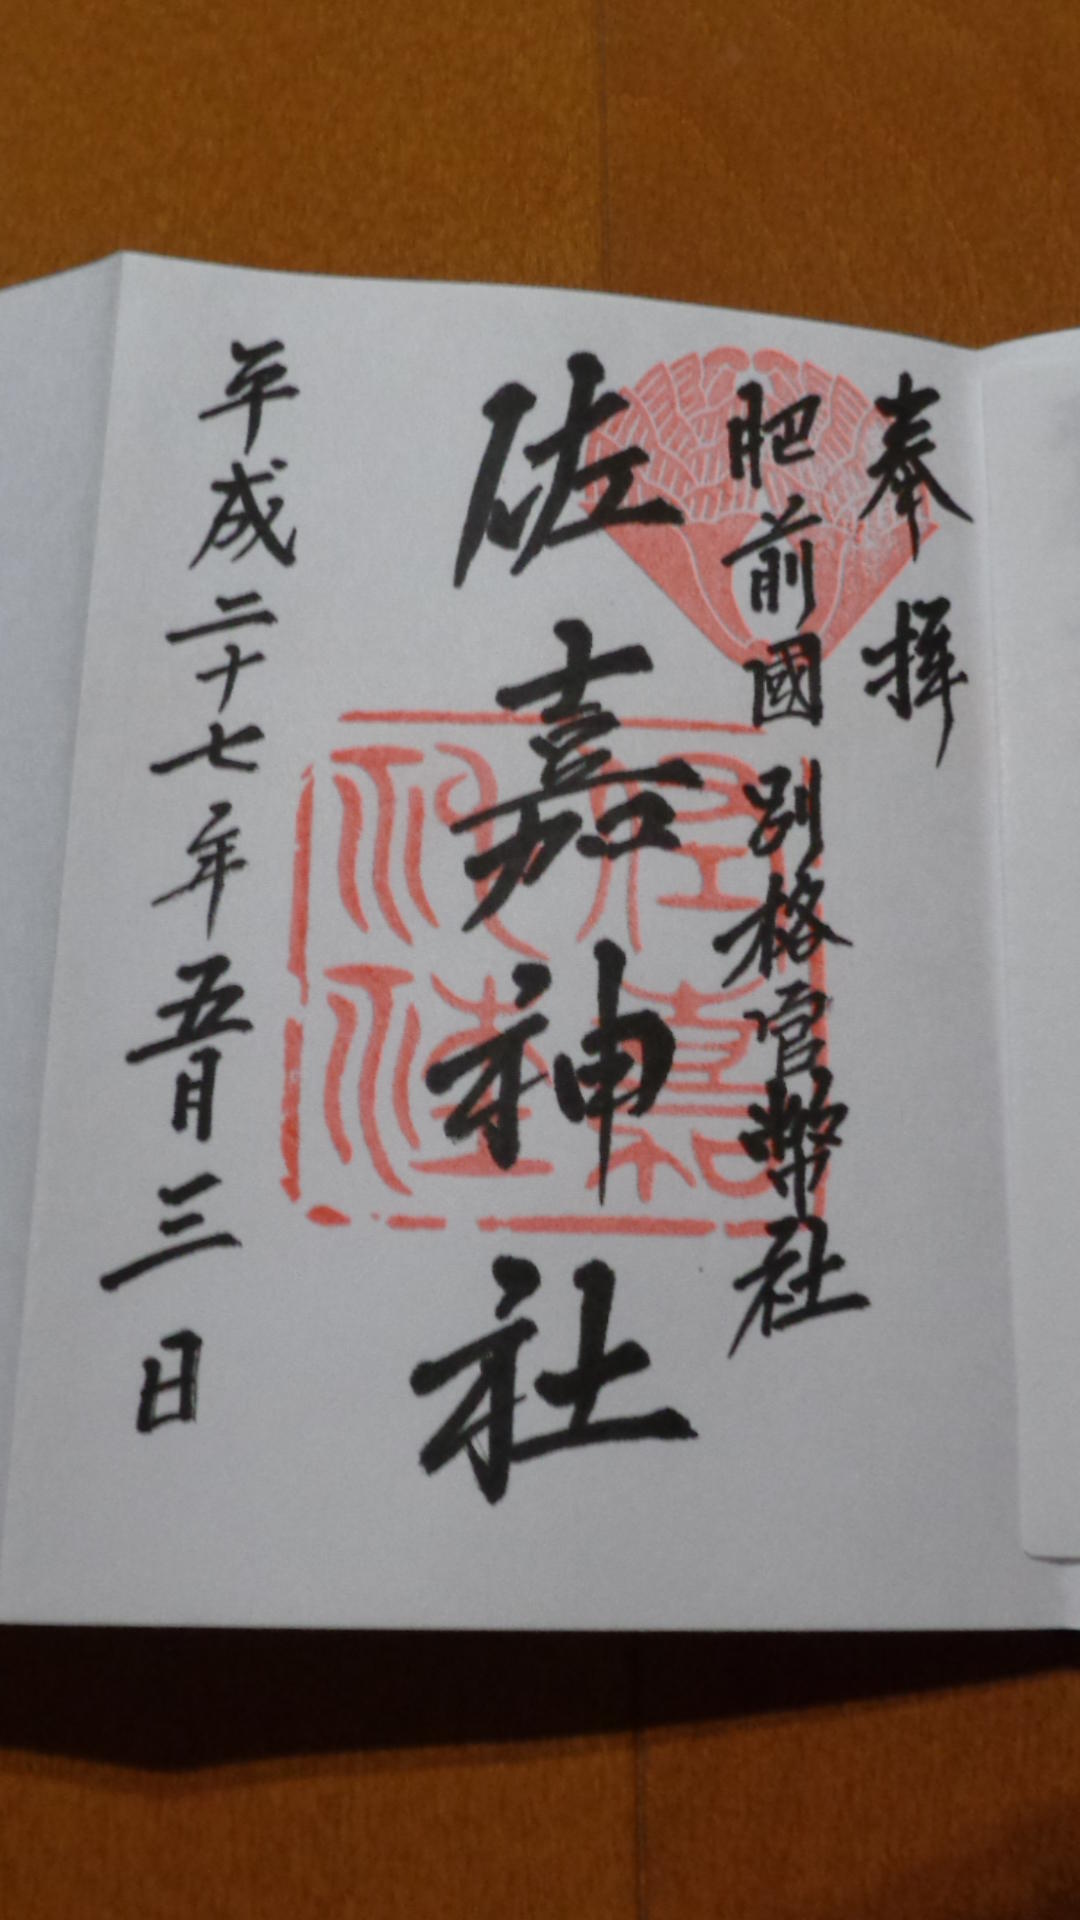 奉拝
肥前國別格官幣社
佐嘉神社
平成二十七年五月三日
佐嘉神社